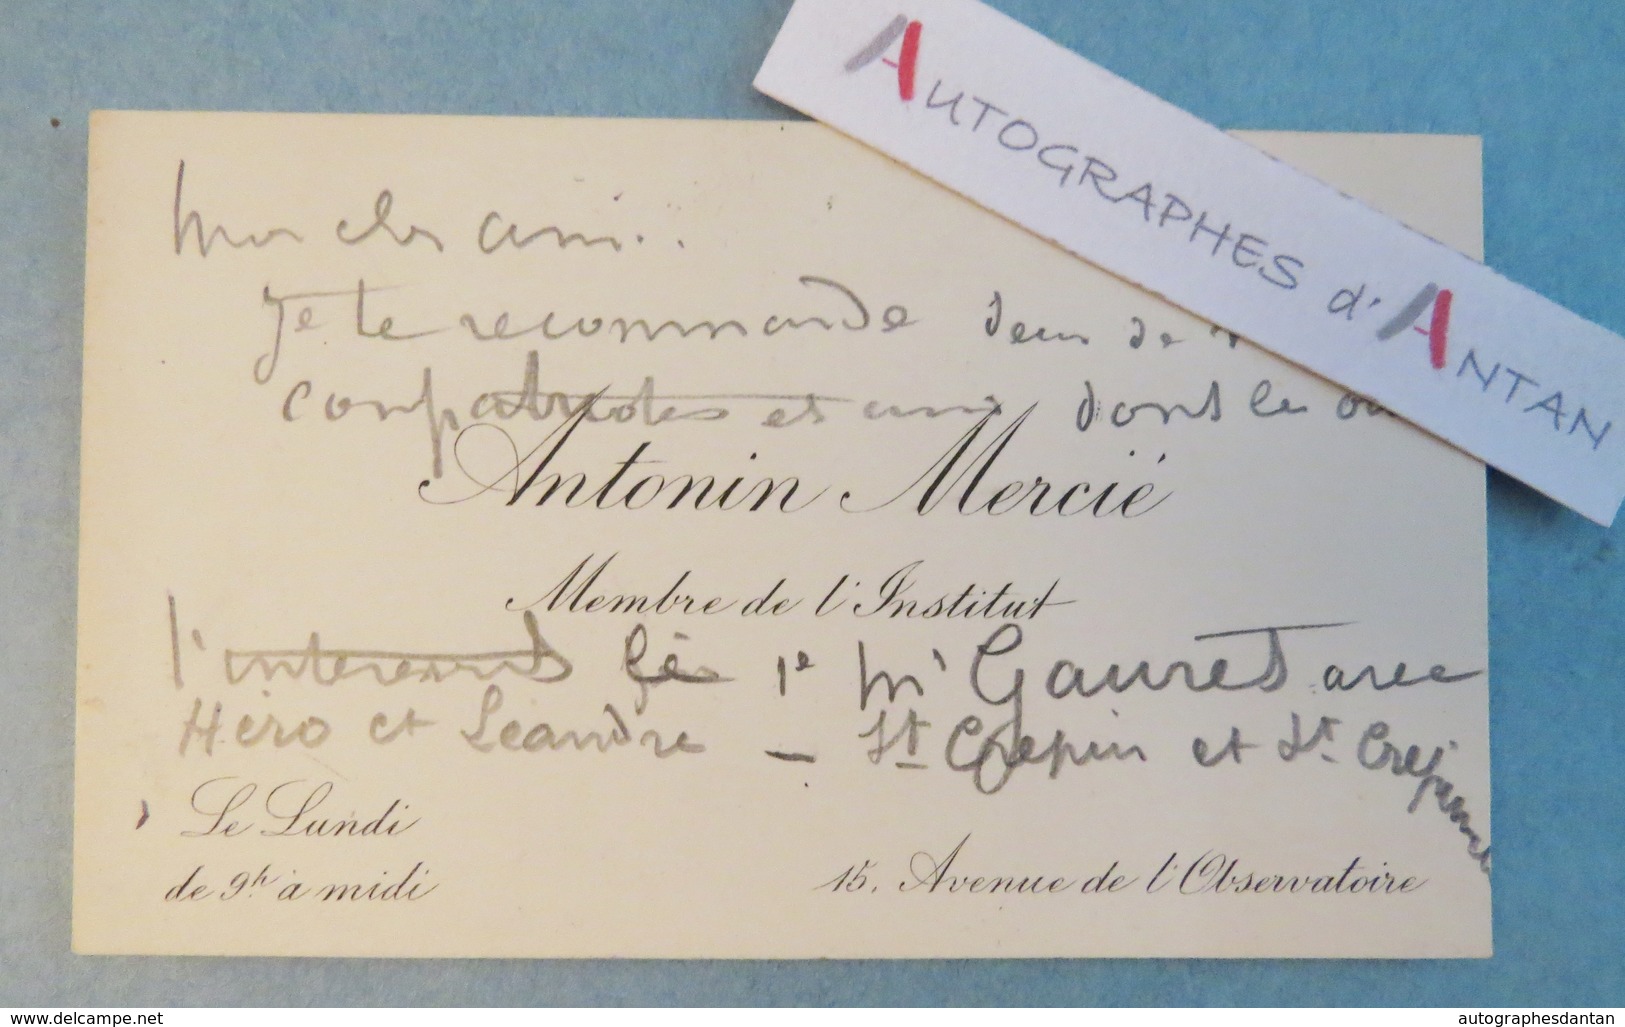 AUTOGRAPHES d'ANTAN
Mon cher ami..
Je te recommande deux de
compatriotes et amis dont le
Antonin Mercié
Membre de l'Institut
l'intéressent 1e Mr Gauret avec
Héro et Léandre — St Crepin et St. Crepinien
Le Lundi
de 9h. à midi
15, Avenue de l'Observatoire
www.delcampe.net
autographesdantan